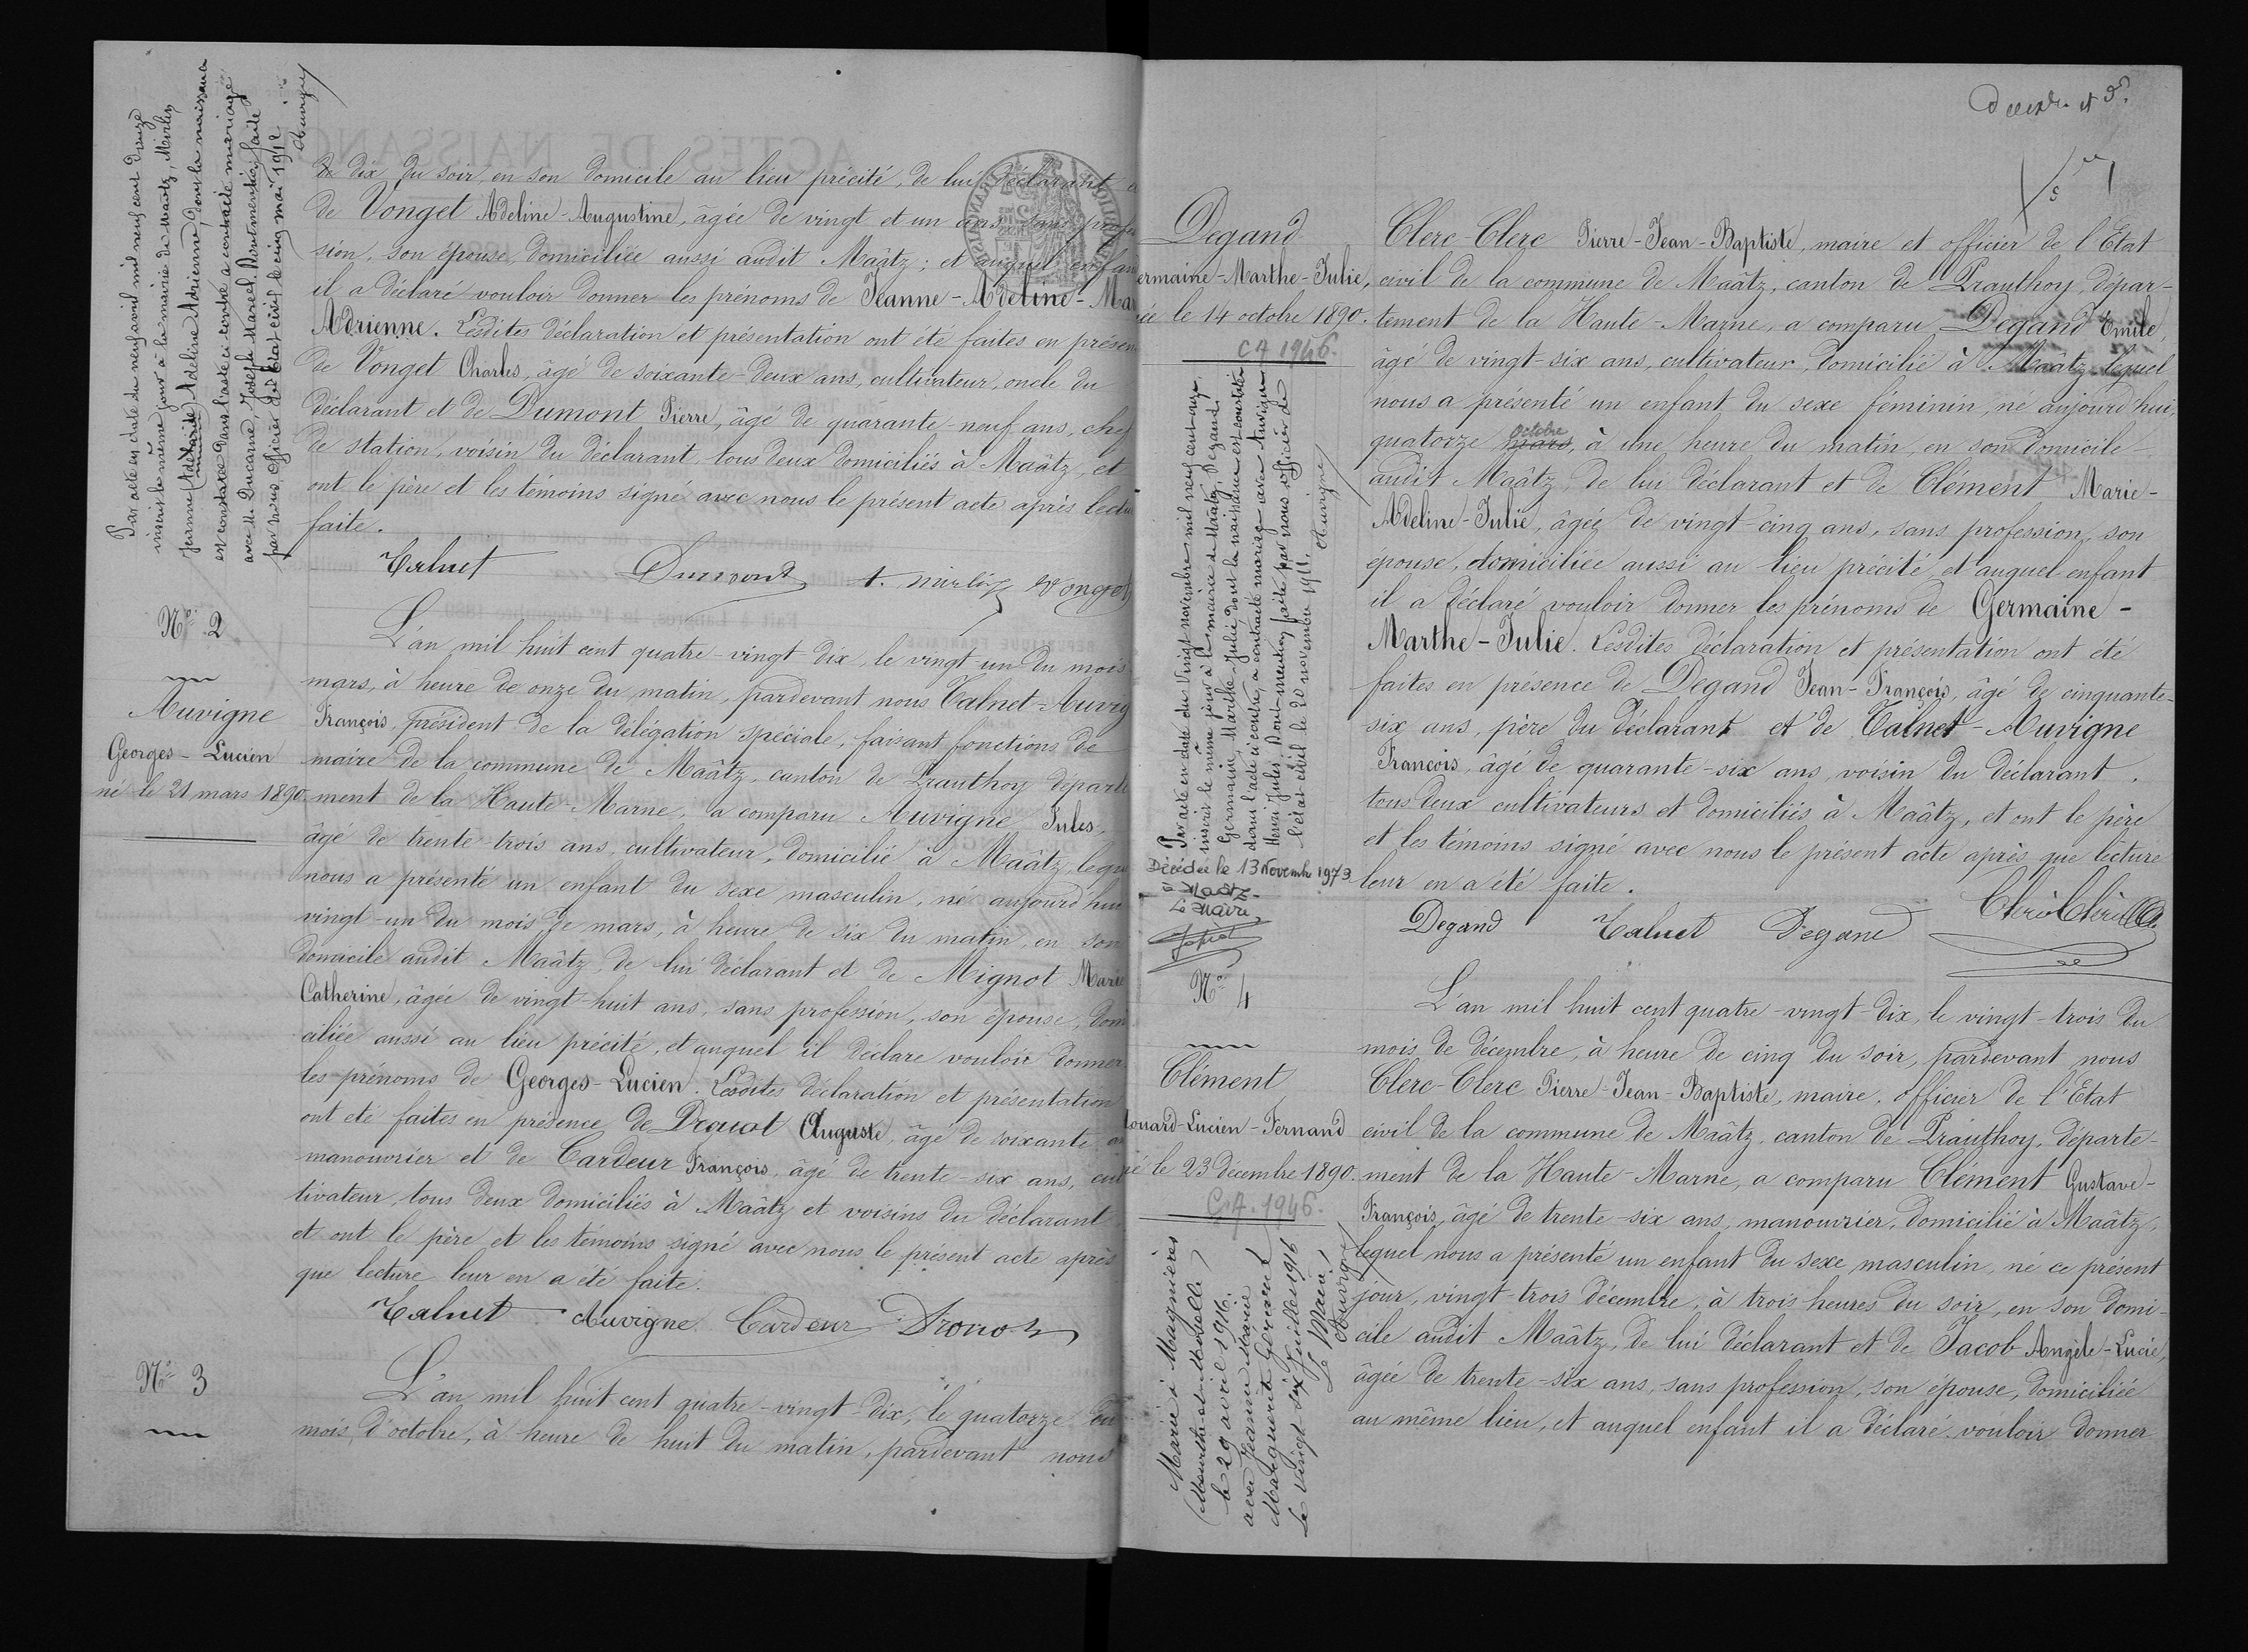 Par acte en date du neuf avril mil neuf cent douze
inscrit le même jour à la mairie de Maatz, Mirbey
Jeanne Adeline Adrienne, dont la naissance
est constatée dans l'acte ci-contre a contracté mariage
avec M. Ducarne, Joseph Marcel. Dont mention faite
par nous, officier de l'état civil le cinq mai 1912
Auvigne
de dix du soir, en son domicile au lieu précité, de lui déclarant
de Vonget Adeline-Augustine, âgée de vingt et un ans, sans profes
sion, son épouse, domiciliée aussi audit Maâtz; et auquel enfan
il a déclaré vouloir donner les prénoms de Jeanne-Adeline-Mar
Adrienne. Lesdites déclaration et présentation ont été faites en présen
de Vonget Charles, âgé de soixante-deux ans, cultivateur, oncle du
déclarant et de Dumont Pierre, âgé de quarante-neuf ans, chef
de station, voisin du déclarant, tous deux domiciliés à Maâtz, et
ont le père et les témoins signé avec nous le présent acte après lectu
faite.
Talnet Dumont A. Mirbey Vonget
N° 2
Auvigne
Georges-Lucien
né le 21 mars 1890.
L'an mil huit cent quatre-vingt-dix, le vingt-un du mois
mars, à heure de onze du matin, pardevant nous Talnet-Auvig
François, président de la délégation spéciale, faisant fonctions de
maire de la commune de Maâtz, canton de Prauthoy départe
ment de la Haute-Marne, a comparu Auvigne Jules,
âgé de trente-trois ans, cultivateur, domicilié à Maâtz, lequ
nous a présenté un enfant du sexe masculin, né aujourd'hui
vingt-un du mois de mars, à heure de six du matin, en son
domicile audit Maâtz, de lui déclarant et de Mignot Marie
Catherine, âgée de vingt-huit ans, sans profession, son épouse, dom
ciliée aussi au lieu précité, et auquel il déclare vouloir donner
les prénoms de Georges-Lucien. Lesdites déclaration et présentation
ont été faites en présence de Drouot Auguste, âgé de soixante an
manouvrier et de Cardeur François, âgé de trente-six ans, cul
tivateur, tous deux domiciliés à Maâtz et voisins du déclarant
et ont le père et les témoins signé avec nous le présent acte après
que lecture leur en a été faite.
Talnet Auvigne Cardeur Drouot
N° 3
L'an mil huit cent quatre-vingt-dix, le quatorze du
mois d'octobre, à heure de huit du matin, pardevant nous
Degand
ermaine-Marthe-Julie,
née le 14 octobre 1890.
CA 1946.
Par acte en date du vingt novembre mil neuf cent onze,
inscrit le même jour à la mairie de Maatz, Degand
Germaine, Marthe, Julie, dont la naissance est constatée
dans l'acte ci contre, a contracté mariage avec Auvigne
Henri Jules. Dont mention faite par nous officier de
l'état civil le 20 novembre 1911. Auvigne
Décédée le 13 Novembre 1973
à Maâtz.
Le Maire,
Clerc-Clerc Pierre-Jean-Baptiste, maire et officier de l'Etat
civil de la commune de Maâtz, canton de Prauthoy, dépar-
tement de la Haute-Marne, a comparu Degand Emile,
âgé de vingt-six ans, cultivateur, domicilié à Maâtz lequel
nous a présenté un enfant du sexe féminin, né aujourd'hui,
quatorze mars octobre, à une heure du matin, en son domicile
audit Maâtz, de lui déclarant et de Clément Marie-
Adeline-Julie, âgée de vingt-cinq ans, sans profession, son
épouse, domiciliée aussi au lieu précité, et auquel enfant
il a déclaré vouloir donner les prénoms de Germaine-
Marthe-Julie. Lesdites déclaration et présentation ont été
faites en présence de Degand Jean-François, âgé de cinquante-
six ans, père du déclarant et de Talnet-Auvigne
François, âgé de quarante-six ans, voisin du déclarant,
tous deux cultivateurs et domiciliés à Maâtz, et ont le père
et les témoins signé avec nous le présent acte après que lecture
leur en a été faite.
Degand Talnet Degand Clerc Clerc
N° 4
Clément
douard-Lucien-Fernand
né le 23 décembre 1890.
C.A. 1946.
Marié à Magnières
(Meurthe et Moselle)
le 29 avril 1916.
avec Jeannin Marie
Marguerite
Le vingt six Juillet 1916
Le Maire,
Auvigne
L'an mil huit cent quatre-vingt-dix, le vingt-trois du
mois de décembre, à heure de cinq du soir, pardevant nous
Clerc-Clerc Pierre-Jean-Baptiste, maire, officier de l'Etat
civil de la commune de Maâtz, canton de Prauthoy, départe-
ment de la Haute-Marne, a comparu Clément Gustave-
François, âgé de trente-six ans, manouvrier, domicilié à Maâtz,
lequel nous a présenté un enfant du sexe masculin, né ce présent
jour, vingt-trois décembre, à trois heures du soir, en son domi-
cile audit Maâtz, de lui déclarant et de Jacob Angèle-Lucie,
âgée de trente-six ans, sans profession, son épouse, domiciliée
au même lieu, et auquel enfant il a déclaré vouloir donner